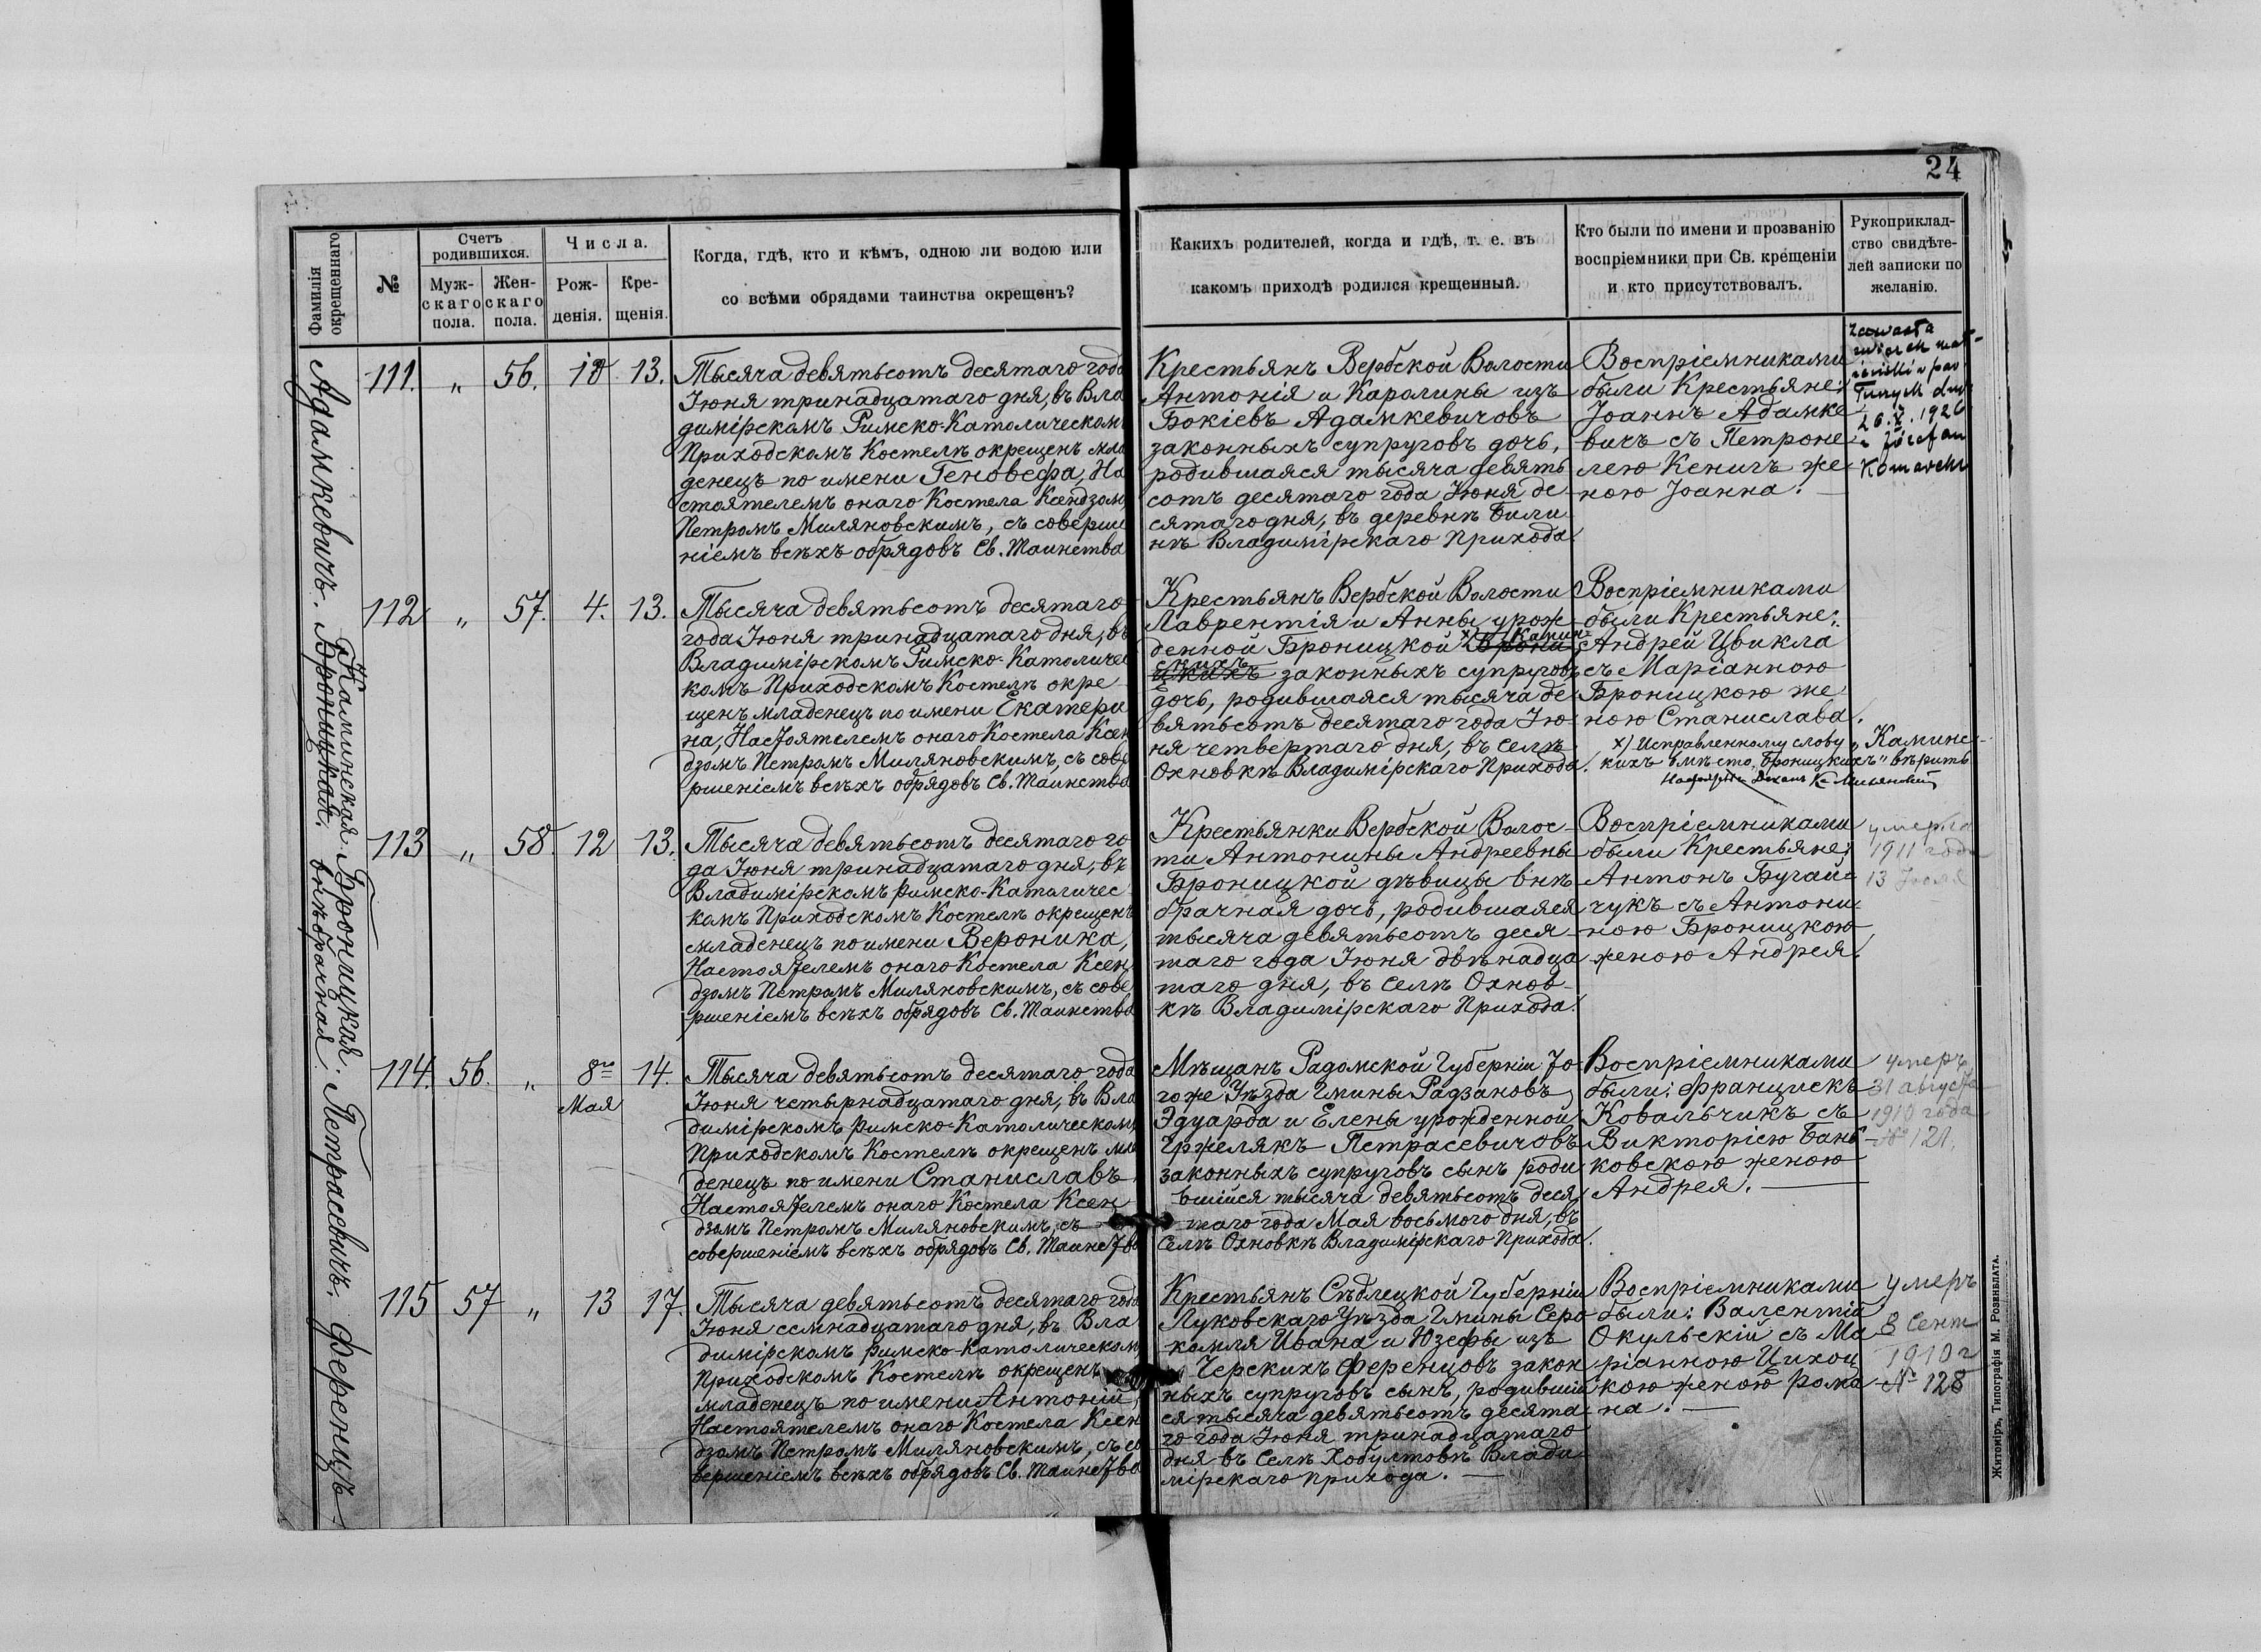 24
Фамилія
окрещеннаго
№
Счетъ
родившихся.
Муж-
скаго
пола.
Жен-
скаго
пола.
Числа.
Рож-
денія.
Кре-
щенія.
Когда, гдѣ, кто и кѣмъ, одною ли водою или
со всѣми обрядами таинства окрещенъ?
Какихъ родителей, когда и гдѣ, т. е. въ
какомъ приходѣ родился крещенный.
Кто были по имени и прозванію
воспріемники при Св. крещеніи
и кто присутствовалъ.
Рукоприклад-
ство свидѣте-
лей записки по
желанію.
Адамкевичъ.
111. " 56. 10 13.
Тысяча девятьсотъ десятаго года
Іюня тринадцатаго дня, въ Вла
димірскомъ Римско-Католическомъ
Приходскомъ Костелѣ окрещенъ мла
денецъ по имени Геновефа, На
стоятелемъ онаго Костела Ксендзомъ
Петромъ Миляновскимъ, съ соверше
ніемъ всѣхъ обрядовъ Св. Таинства
Крестьянъ Вербской Волости
Антонія и Каролины изъ
Бокіевъ Адамкевичовъ
законныхъ супруговъ дочь,
родившаяся тысяча девять
сотъ десятаго года Іюня де
сятаго дня, въ деревнѣ Били
нѣ Владимірскаго Прихода.
Воспріемниками
были Крестьяне:
Іоаннъ Адамке
вичъ съ Петроне
лею Кеничъ же
ною Іоанна.
zawarła
26.X.1926
z Józefem
Каминская
Броницкая.
112 " 57. 4. 13.
Тысяча девятьсотъ десятаго
года Іюня тринадцатаго дня, въ
Владимірскомъ Римско-Католичес
комъ Приходскомъ Костелѣ окре
щенъ младенецъ по имени Екатери
на, Настоятелемъ онаго Костела Ксен
дзомъ Петромъ Миляновскимъ, съ сове
ршеніемъ всѣхъ обрядовъ Св. Таинства
Крестьянъ Вербской Волости
Лаврентія и Анны урож
денной Броницкой х) Камин- Брони
скихъ цкихъ законныхъ супруговъ
дочь, родившаяся тысяча де
вятьсотъ десятаго года Ію
ня четвертаго дня, въ селѣ
Охновкѣ Владимірскаго Прихода.
Воспріемниками
были Крестьяне:
Андрей Цвикла
съ Маріанною
Броницкою же
ною Станислава.
х) Исправленному слову „Каминс-
кихъ вмѣсто „Броницкихъ" вѣрить
Броницкая.
внѣбрачная
113 " 58. 12 13.
Тысяча девятьсотъ десятаго го
да Іюня тринадцатаго дня, въ
Владимірскомъ Римско-Католичес
комъ Приходскомъ Костелѣ окрещенъ
младенецъ по имени Вероника,
Настоятелемъ онаго Костела Ксен
дзомъ Петромъ Миляновскимъ, съ сове
ршеніемъ всѣхъ обрядовъ Св. Таинства
Крестьянки Вербской Волос-
ти Антонины Андреевны
Броницкой дѣвицы внѣ
брачная дочь, родившаяся
тысяча девятьсотъ деся
таго года Іюня двѣнадца
таго дня, въ селѣ Охнов-
кѣ Владимірскаго Прихода.
Воспріемниками
были Крестьяне:
Антонъ Бугай-
чукъ съ Антони
ною Броницкою
женою Андрея.
умерла
1911 года
13 Іюля
Петрасевичъ.
114. 56. " 8го Мая 14.
Тысяча девятьсотъ десятаго года
Іюня четырнадцатаго дня, въ Вла
димірскомъ Римско-Католическомъ
Приходскомъ Костелѣ окрещенъ мла
денецъ по имени Станиславъ
Настоятелемъ онаго Костела Ксен
дзомъ Петромъ Миляновскимъ, съ
совершеніемъ всѣхъ обрядовъ Св. Таинства
Мѣщанъ Радомской Губерніи То-
гоже Уѣзда Гмины Радзановъ
Эдуарда и Елены урожденной
Гржелякъ Петрасевичовъ
законныхъ супруговъ сынъ роди
вшійся тысяча девятьсотъ деся
таго года Мая восьмого дня, въ
Селѣ Охновкѣ Владимірскаго Прихода.
Воспріемниками
были: Францискъ
Ковальчикъ съ
Викторіею Бань
ковскою женою
Андрея.
умеръ
31 августа
1910 года
№ 121.
Ференцъ
115 57 " 13 17.
Тысяча девятьсотъ десятаго года
Іюня семнадцатаго дня, въ Вла
димірскомъ Римско-Католическомъ
Приходскомъ Костелѣ окрещенъ
младенецъ по имени Антоній,
Настоятелемъ онаго Костела Ксен
дзомъ Петромъ Миляновскимъ, съ со
вершеніемъ всѣхъ обрядовъ Св. Таинства
Крестьянъ Сѣдлецкой Губерніи
Луковскаго Уѣзда Гмины Серо
комля Ивана и Юзефы изъ
Черскихъ Ференцовъ закон
ныхъ супруговъ сынъ, родившій
ся тысяча девятьсотъ десята
го года Іюня тринадцатаго
дня въ Селѣ Хобултовѣ Влади
мірскаго прихода.
Воспріемниками
были: Валентій
Окульскій съ Ма
ріанною Цихоц
кою женою Рома
на.
умеръ
3 Сент
1910 г
№ 128
Житоміръ, Типографія М. Розенблата.